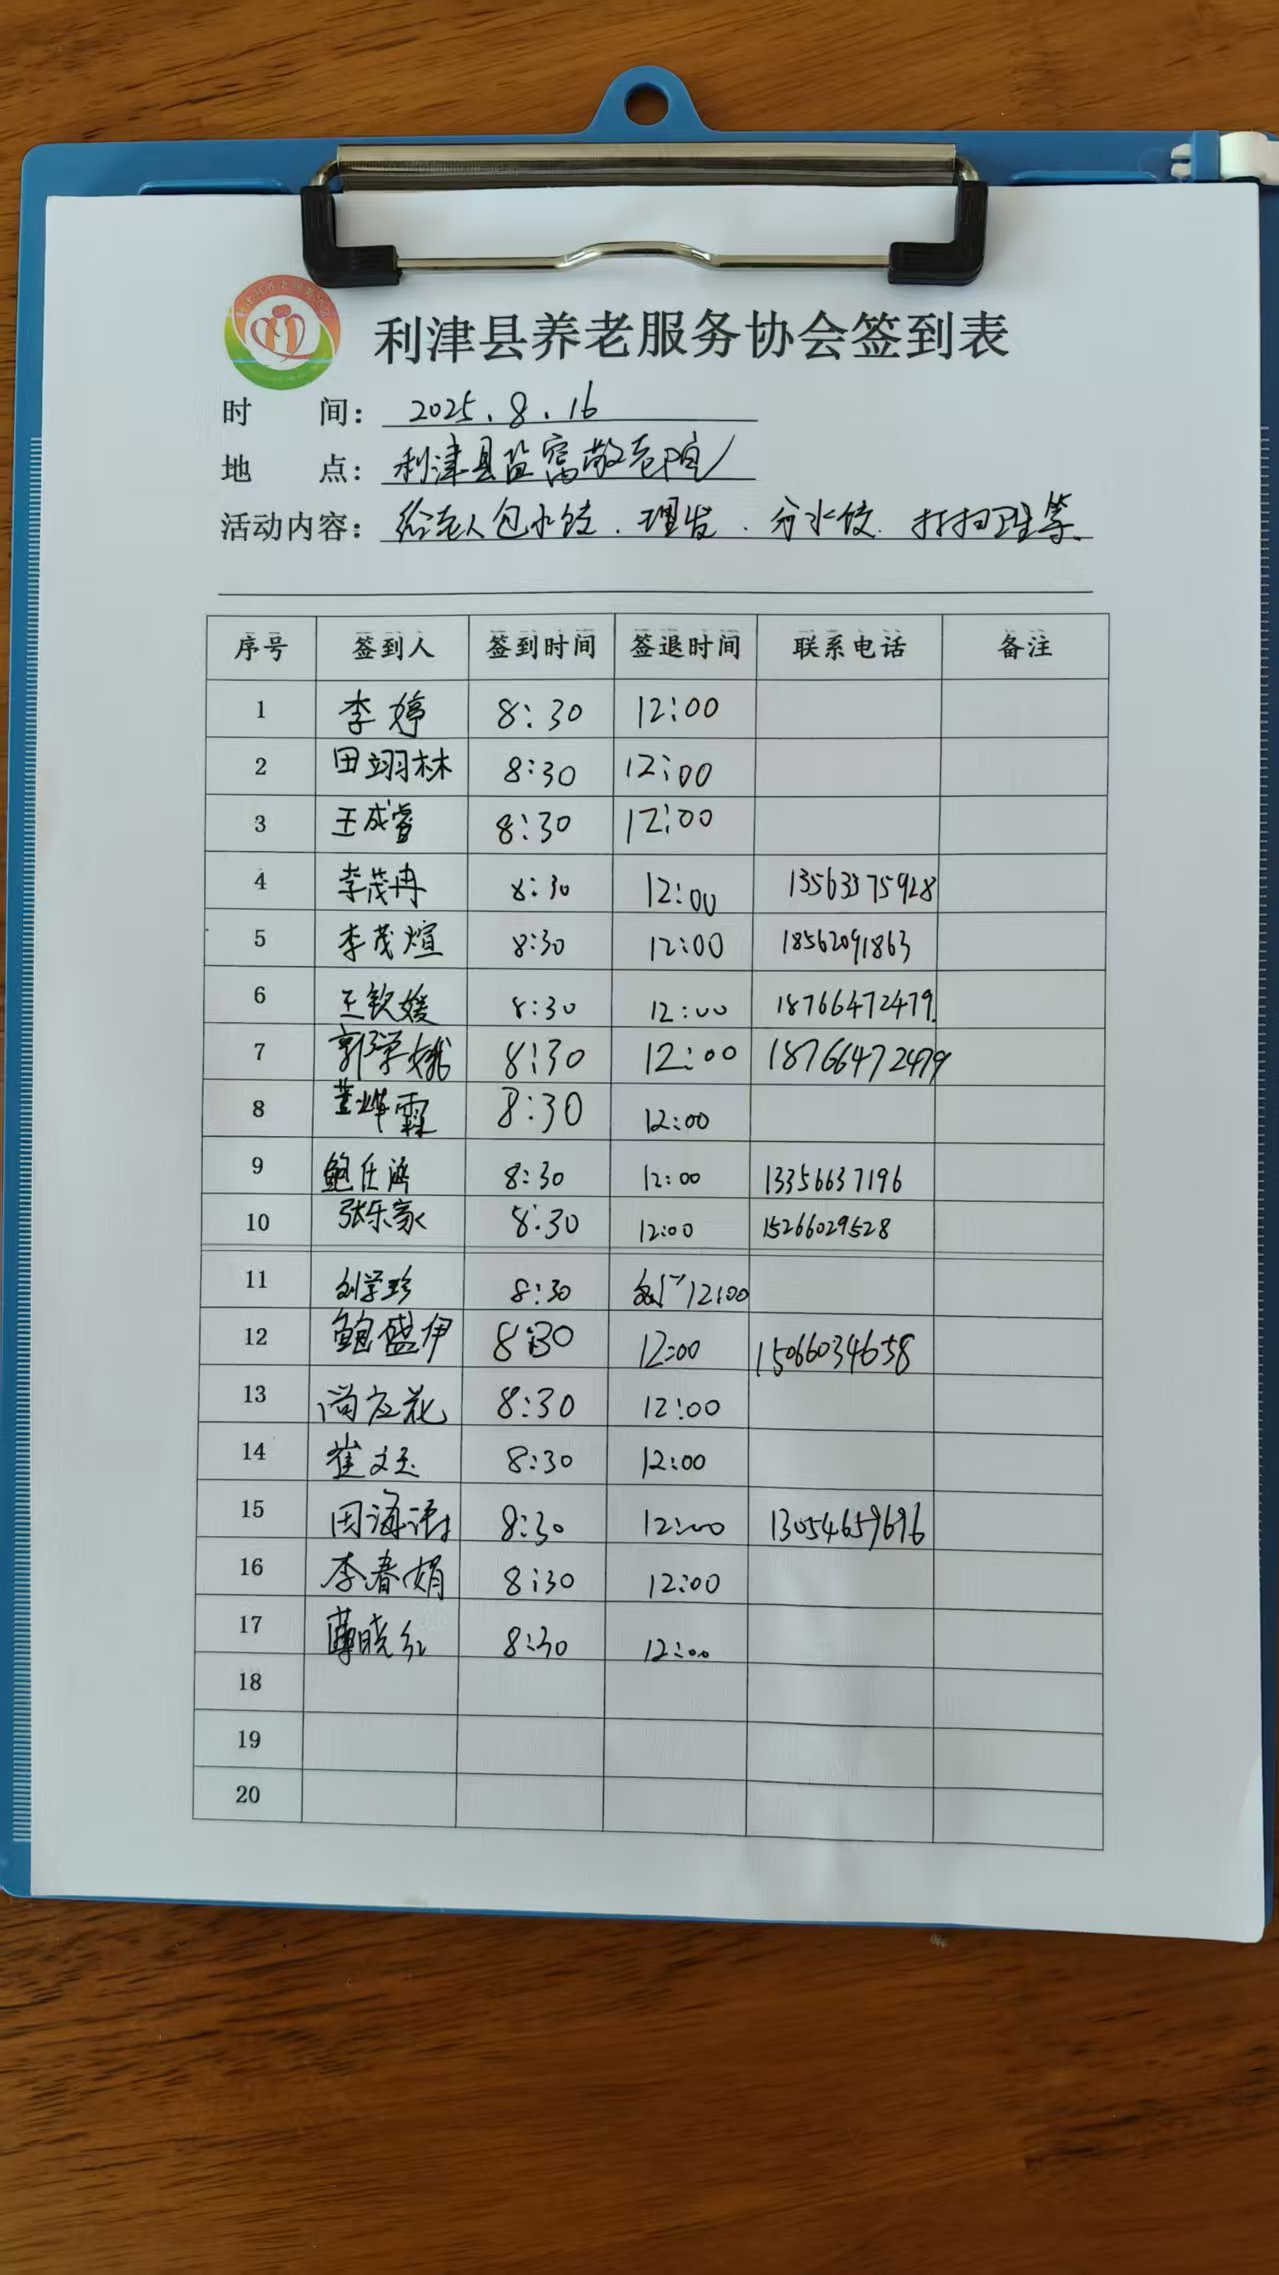 利津县养老服务协会签到表
时 间: 2025.8.16
地 点: 利津县盐窝敬老院
活动内容: 给老人包水饺.理发.分水饺.打扫卫生等.
序号 签到人 签到时间 签退时间 联系电话 备注
1 李婷 8:30 12:00
2 田翊林 8:30 12:00
3 王成睿 8:30 12:00
4 李茂冉 8:30 12:00 13563375928
5 李茂煊 8:30 12:00 18562091863
6 王钦媛 8:30 12:00 18766472479
7 郭学娥 8:30 12:00 18766472479
8 董烨霖 8:30 12:00
9 鲍仕鸿 8:30 12:00 13356637196
10 张乐家 8:30 12:00 15266029528
11 刘学珍 8:30 12:00
12 鲍盛伊 8:30 12:00 15066034658
13 尚应花 8:30 12:00
14 崔文玉 8:30 12:00
15 田海涛 8:30 12:00 13054659696
16 李春娟 8:30 12:00
17 薄晓红 8:30 12:00
18
19
20